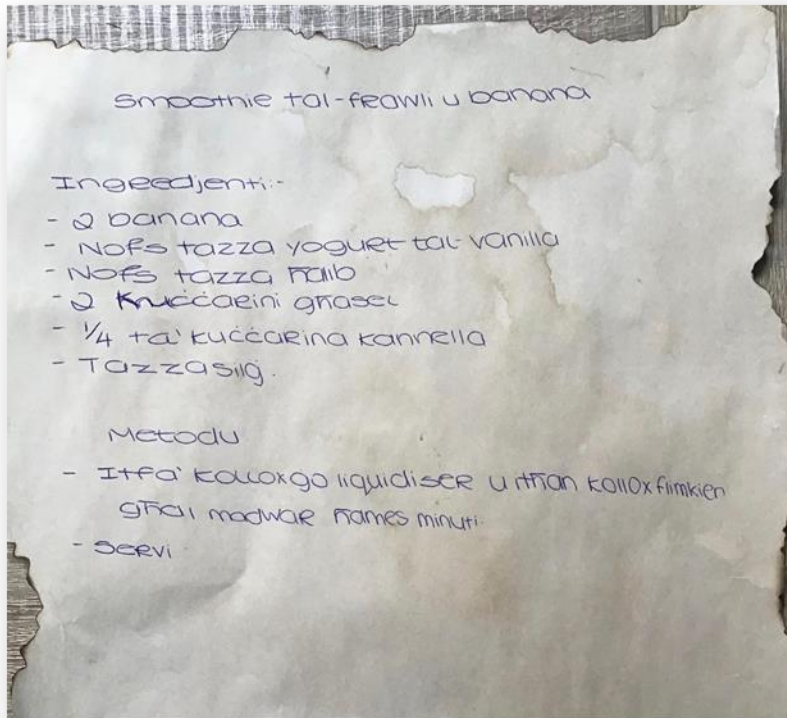 Smoothie tal-frawli u banana
Ingredjenti:-
- 2 banana
- Nofs tazza yogurt tal-vanilla
- Nofs tazza ħalib
- 2 kuċċarini għasel
- 1/4 ta' kuċċarina kannella
- Tazza silġ.
Metodu
- Itfa' kollox go liquidiser u itħan kollox flimkien
għal madwar ħames minuti.
- Servi